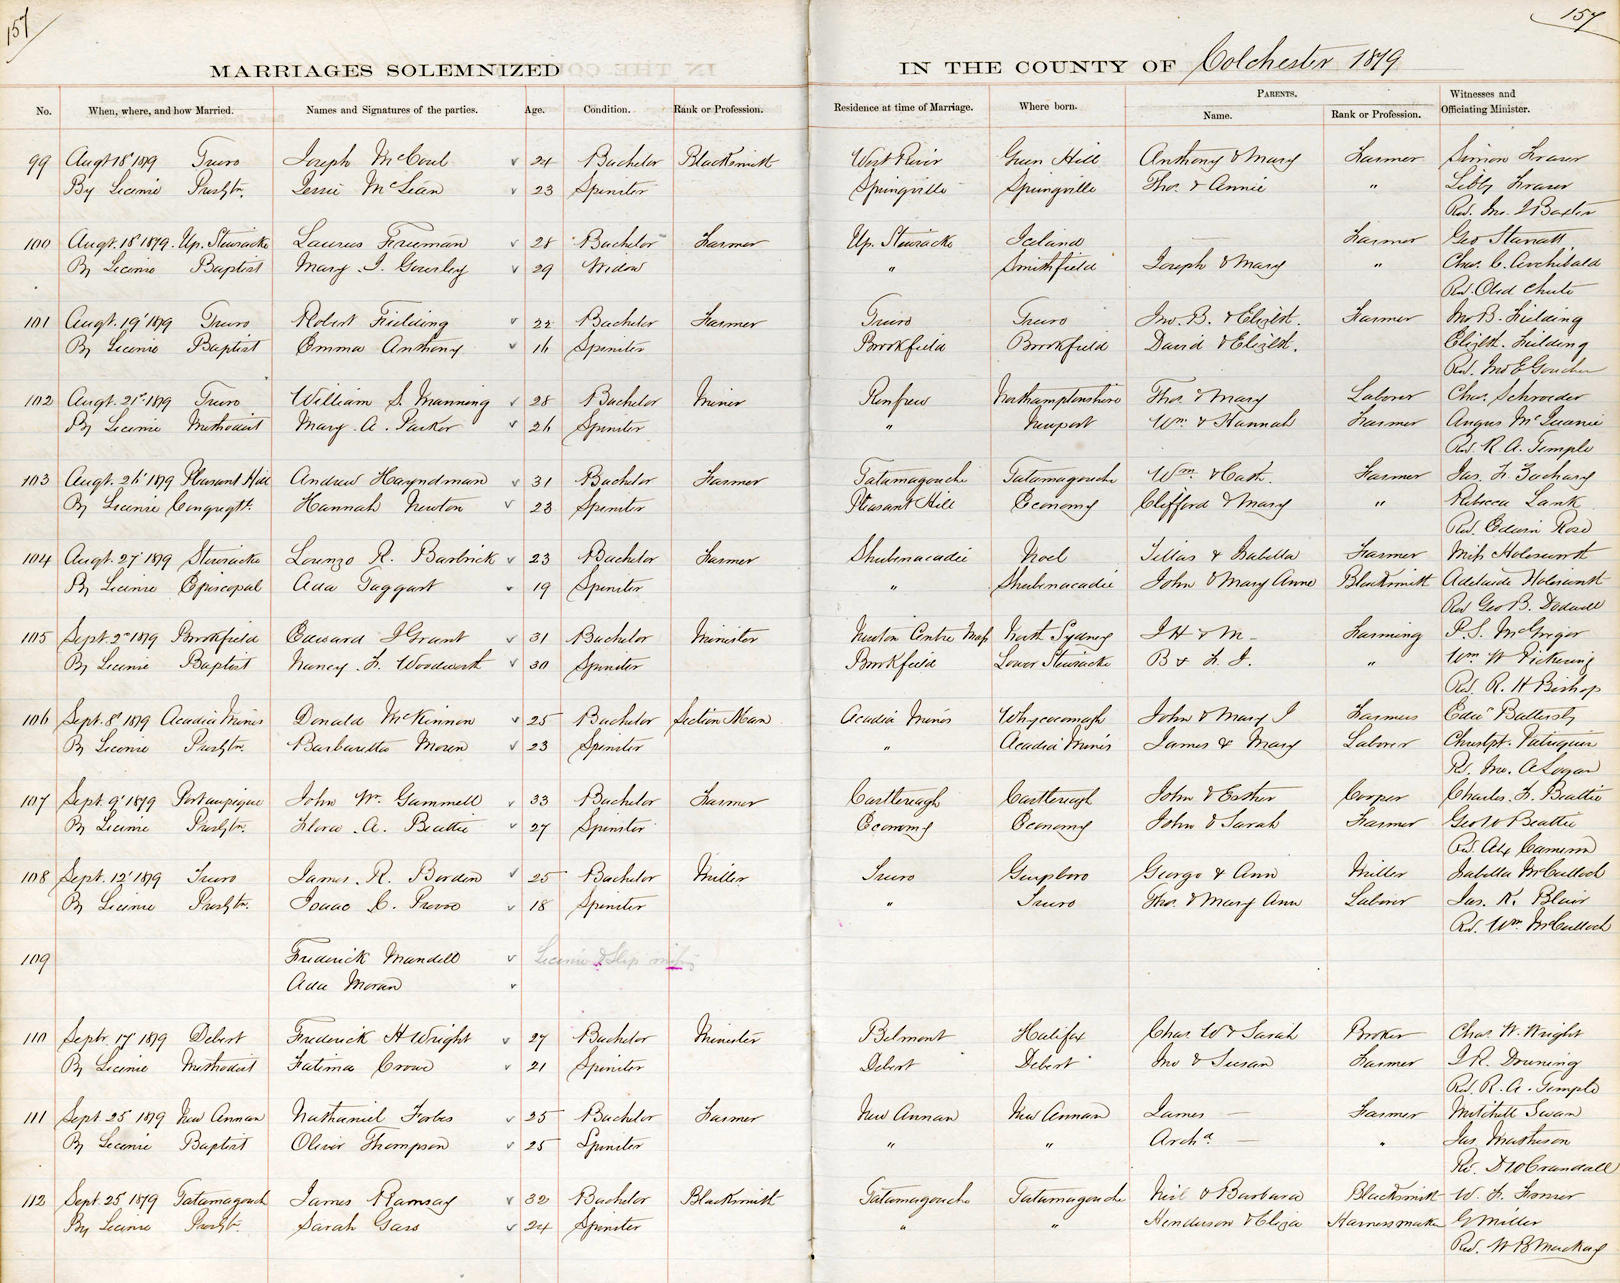 157
157
MARRIAGES SOLEMNIZED IN THE COUNTY OF Colchester 1879
No. When, where, and how Married. Names and Signatures of the parties. Age. Condition. Rank or Profession. Residence at time of Marriage. Where born. PARENTS. Name. Rank or Profession. Witnesses and Officiating Minister.
99 Augt 18' 1879 Truro Joseph McCoul 24 Bachelor Blacksmith West River Green Hill Anthony & Mary Farmer Simon Fraser
By License Presbtn. Jessie McLean 23 Spinster Springville Springville Thos. & Annie " Libby Fraser
Rd. Jno. I Baxter
100 Augt. 18' 1879. Up. Stewiacke Laurus Freeman 28 Bachelor Farmer Up. Stewiacke Iceland — Farmer Geo Starratt
By License Baptist Mary J. Gourley 29 Widow " Smithfield Joseph & Mary " Chas. C. Archibald
Rd. Obed Chute
101 Augt. 19' 1879 Truro Robert Fielding 22 Bachelor Farmer Truro Truro Jno. B. & Elizbth. Farmer Jno B. Fielding
By License Baptist Emma Anthony 16 Spinster Brookfield Brookfield David & Elizbth. Elizbth. Fielding
Rd. Jno E Goucher
102 Augt. 21st 1879 Truro William S. Manning 28 Bachelor Miner Renfrew Northamptonshire Thos. & Mary Laborer Chas. Schroeder
By License Methodist Mary A. Parker 26 Spinster " Newport Wm. & Hannah Farmer Angus McQuarrie
Rd. R. A. Temple
103 Augt. 26' 1879 Pleasant Hill Andrew Hayndman 31 Bachelor Farmer Tatamagouche Tatamagouche Wm & Cath. Farmer Jas. F. Zachary
By License Congregtl. Hannah Newton 23 Spinster Pleasant Hill Economy Clifford & Mary " Rebecca Lank
Rd. Edwin Rose
104 Augt. 27' 1879 Stewiacke Lorenzo R. Barbrick 23 Bachelor Farmer Shubenacadie Noel Silias & Isabella Farmer Miss Holesworth
By License Episcopal Ada Taggart 19 Spinster " Shubenacadie John & Mary Anne Blacksmith Adelaide Holesworth
Rd Geo B. Dodwell
105 Sept. 2nd 1879 Brookfield Edward J Grant 31 Bachelor Minister Newton Centre Mass North Sydney J H & M— Farming P. S. McGregor
By License Baptist Nancy F. Woodworth 30 Spinster Brookfield Lower Stewiacke B & F. J. " Wm W Pickering
Rd. R. H Bishop
106 Sept. 8' 1879 Acadia Mines Donald McKinnon 25 Bachelor Section Man Acadia Mines Whycocomagh John & Mary J Farmers Edwd Battersby
By License Presbtn. Barbaretta Moren 23 Spinster " Acadia Mines James & Mary Laborer Christpr. Patriquin
Rd. Jno. A Logan
107 Sept. 9' 1879 Portaupique John Wm. Gammell 33 Bachelor Farmer Castlereagh Castlereagh John & Esther Cooper Charles F. Beattie
By License Presbtn. Flora A. Beattie 27 Spinster Economy Economy John & Sarah Farmer Geo W Beattie
Rd. Alx Cameron
108 Sept. 12' 1879 Truro James R. Borden 25 Bachelor Miller Truro Guysboro George & Ann Miller Isabella McCulloch
By License Presbtn. Isaac C. Provo 18 Spinster " Truro Thos. & Mary Ann Laborer Jas. K. Blair
Rd. Wm. McCulloch
109 Frederick Mandell License & Slip missing
Ada Moran
110 Septr. 17' 1879 Debert Frederick H Wright 27 Bachelor Minister Belmont Halifax Chas W & Sarah Broker Chas W. Wright
By License Methodist Fatima Crowe 21 Spinster Debert Debert Jno & Susan Farmer J R. Druning
Rd. R. A. Temple
111 Sept. 25 1879 New Annan Nathaniel Forbes 25 Bachelor Farmer New Annan New Annan James — Farmer Mitchell Swan
By License Baptist Oliver Thompson 25 Spinster " " Archd. — " Jas. Matheson
Rd. D W Crandall
112 Sept. 25 1879 Tatamagouch James Ramsay 32 Bachelor Blacksmith Tatamagouche Tatamagouche Neil & Barbara Blacksmith W. F. Fraser
By License Presbtn. Sarah Gass 24 Spinster " " Henderson & Eliza Harnessmaker G Miller
Rd. W B Mackay